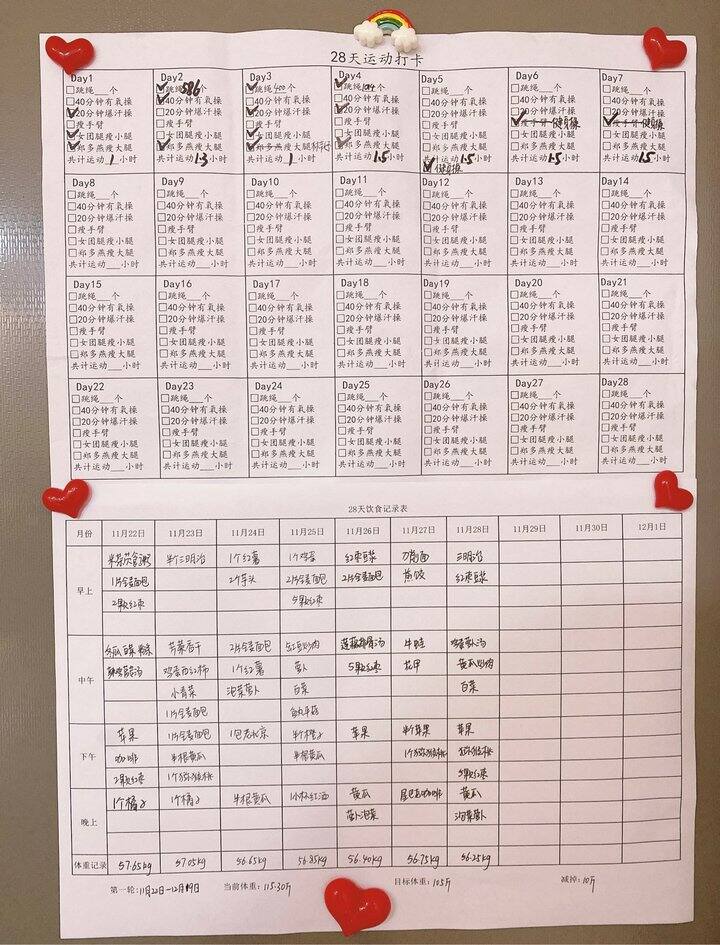 28天运动打卡
Day1 Day2 Day3 Day4 Day5 Day6 Day7
跳绳___个 跳绳586 跳绳400个 跳绳104 跳绳___个 跳绳___个 跳绳___个
40分钟有氧操 40分钟有氧操 40分钟有氧操 40分钟有氧操 40分钟有氧操 40分钟有氧操 40分钟有氧操
20分钟爆汗操 20分钟爆汗操 20分钟爆汗操 20分钟爆汗操 20分钟爆汗操 20分钟爆汗操 20分钟爆汗操
瘦手臂 瘦手臂 瘦手臂 瘦手臂 瘦手臂 瘦手臂 健身操 瘦手臂 健身操
女团腿瘦小腿 女团腿瘦小腿 女团腿瘦小腿 女团腿瘦小腿 女团腿瘦小腿 女团腿瘦小腿 女团腿瘦小腿
郑多燕瘦大腿 郑多燕瘦大腿 郑多燕瘦大腿 郑多燕瘦大腿 郑多燕瘦大腿 郑多燕瘦大腿 郑多燕瘦大腿
共计运动1小时 共计运动1.3小时 共计运动1小时 共计运动1.5小时 共计运动1.5小时 共计运动1.5小时 共计运动1.5小时
健身操
Day8 Day9 Day10 Day11 Day12 Day13 Day14
跳绳___个 跳绳___个 跳绳___个 跳绳___个 跳绳___个 跳绳___个 跳绳___个
40分钟有氧操 40分钟有氧操 40分钟有氧操 40分钟有氧操 40分钟有氧操 40分钟有氧操 40分钟有氧操
20分钟爆汗操 20分钟爆汗操 20分钟爆汗操 20分钟爆汗操 20分钟爆汗操 20分钟爆汗操 20分钟爆汗操
瘦手臂 瘦手臂 瘦手臂 瘦手臂 瘦手臂 瘦手臂 瘦手臂
女团腿瘦小腿 女团腿瘦小腿 女团腿瘦小腿 女团腿瘦小腿 女团腿瘦小腿 女团腿瘦小腿 女团腿瘦小腿
郑多燕瘦大腿 郑多燕瘦大腿 郑多燕瘦大腿 郑多燕瘦大腿 郑多燕瘦大腿 郑多燕瘦大腿 郑多燕瘦大腿
共计运动___小时 共计运动___小时 共计运动___小时 共计运动___小时 共计运动___小时 共计运动___小时 共计运动___小时
Day15 Day16 Day17 Day18 Day19 Day20 Day21
跳绳___个 跳绳___个 跳绳___个 跳绳___个 跳绳___个 跳绳___个 跳绳___个
40分钟有氧操 40分钟有氧操 40分钟有氧操 40分钟有氧操 40分钟有氧操 40分钟有氧操 40分钟有氧操
20分钟爆汗操 20分钟爆汗操 20分钟爆汗操 20分钟爆汗操 20分钟爆汗操 20分钟爆汗操 20分钟爆汗操
瘦手臂 瘦手臂 瘦手臂 瘦手臂 瘦手臂 瘦手臂 瘦手臂
女团腿瘦小腿 女团腿瘦小腿 女团腿瘦小腿 女团腿瘦小腿 女团腿瘦小腿 女团腿瘦小腿 女团腿瘦小腿
郑多燕瘦大腿 郑多燕瘦大腿 郑多燕瘦大腿 郑多燕瘦大腿 郑多燕瘦大腿 郑多燕瘦大腿 郑多燕瘦大腿
共计运动___小时 共计运动___小时 共计运动___小时 共计运动___小时 共计运动___小时 共计运动___小时 共计运动___小时
Day22 Day23 Day24 Day25 Day26 Day27 Day28
跳绳___个 跳绳___个 跳绳___个 跳绳___个 跳绳___个 跳绳___个 跳绳___个
40分钟有氧操 40分钟有氧操 40分钟有氧操 40分钟有氧操 40分钟有氧操 40分钟有氧操 40分钟有氧操
20分钟爆汗操 20分钟爆汗操 20分钟爆汗操 20分钟爆汗操 20分钟爆汗操 20分钟爆汗操 20分钟爆汗操
瘦手臂 瘦手臂 瘦手臂 瘦手臂 瘦手臂 瘦手臂 瘦手臂
女团腿瘦小腿 女团腿瘦小腿 女团腿瘦小腿 女团腿瘦小腿 女团腿瘦小腿 女团腿瘦小腿 女团腿瘦小腿
郑多燕瘦大腿 郑多燕瘦大腿 郑多燕瘦大腿 郑多燕瘦大腿 郑多燕瘦大腿 郑多燕瘦大腿 郑多燕瘦大腿
共计运动___小时 共计运动___小时 共计运动___小时 共计运动___小时 共计运动___小时 共计运动___小时 共计运动___小时
28天饮食记录表
月份 11月22日 11月23日 11月24日 11月25日 11月26日 11月27日 11月28日 11月29日 11月30日 12月1日
半个三明治 1个红薯 1个鸡蛋 红枣豆浆 刀削面 三明治
早上 1片全麦面包 2个芋头 2片全麦面包 2片全麦面包 蒸饺 红枣豆浆
2颗红枣 5颗红枣
芹菜香干 2片全麦面包 牛蛙 鸡蛋萝卜汤
中午 鸡蛋西红柿 1个红薯 萝卜 5颗红枣 花甲 黄瓜炒肉
小青菜 泡菜萝卜 白菜 白菜
1片全麦面包
苹果 1片全麦面包 半个橙子 苹果 半个苹果 苹果
下午 咖啡 半根黄瓜 半根黄瓜 1个猕猴桃 猕猴桃
2颗红枣 1个猕猴桃 5颗红枣
1个橘子 1个橘子 半根黄瓜 小杯红酒 黄瓜 黄瓜
晚上 萝卜泡菜 泡菜萝卜
体重记录 57.65kg 57.05kg 56.65kg 56.85kg 56.40kg 56.75kg 56.25kg
第一轮:11月22日—12月19日 当前体重:115.30斤 目标体重:105斤 减掉:10斤